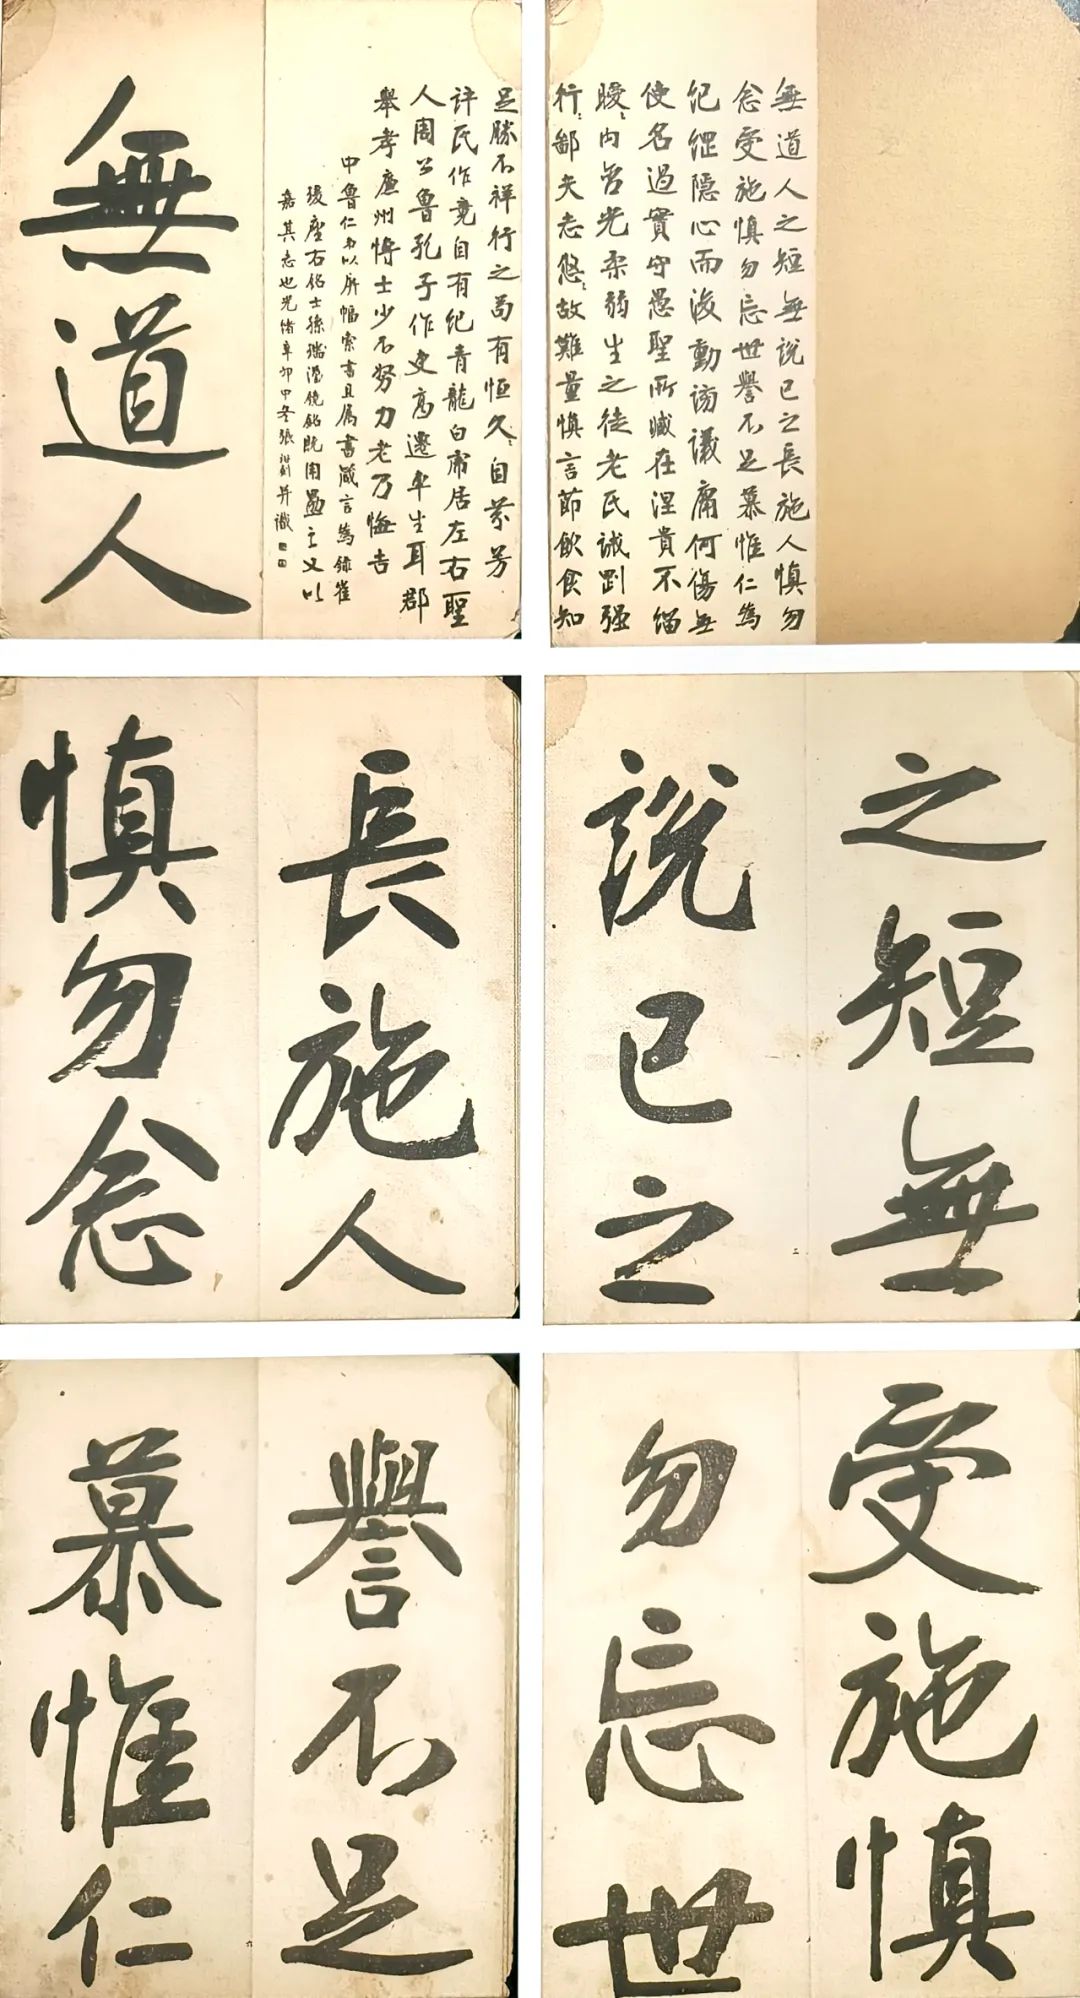 無道人之短無說己之長施人慎勿
念受施慎勿忘世譽不足慕惟仁為
紀綱隱心而後動謗議庸何傷無
使名過實守愚聖所臧在涅貴不緇
曖〻內含光柔弱生之徒老氏誡剛强
行〻鄙夫志悠〻故難量慎言節飲食知
足勝不祥行之苟有恒久〻自芬芳
許氏作竟自有紀青龍白虎居左右聖
人周公魯孔子作吏高遷車生耳郡
舉孝廉州博士少不努力老乃悔吉
中魯仁弟以所幅索書且屬書箴言為錄崔
瑗座右銘士孫瑞漢鏡銘既用勗之又以
嘉其志也光緒辛卯中冬張并識
無道人
之短無
說己之
長施人
慎勿念
受施慎
勿忘世
譽不足
慕惟仁